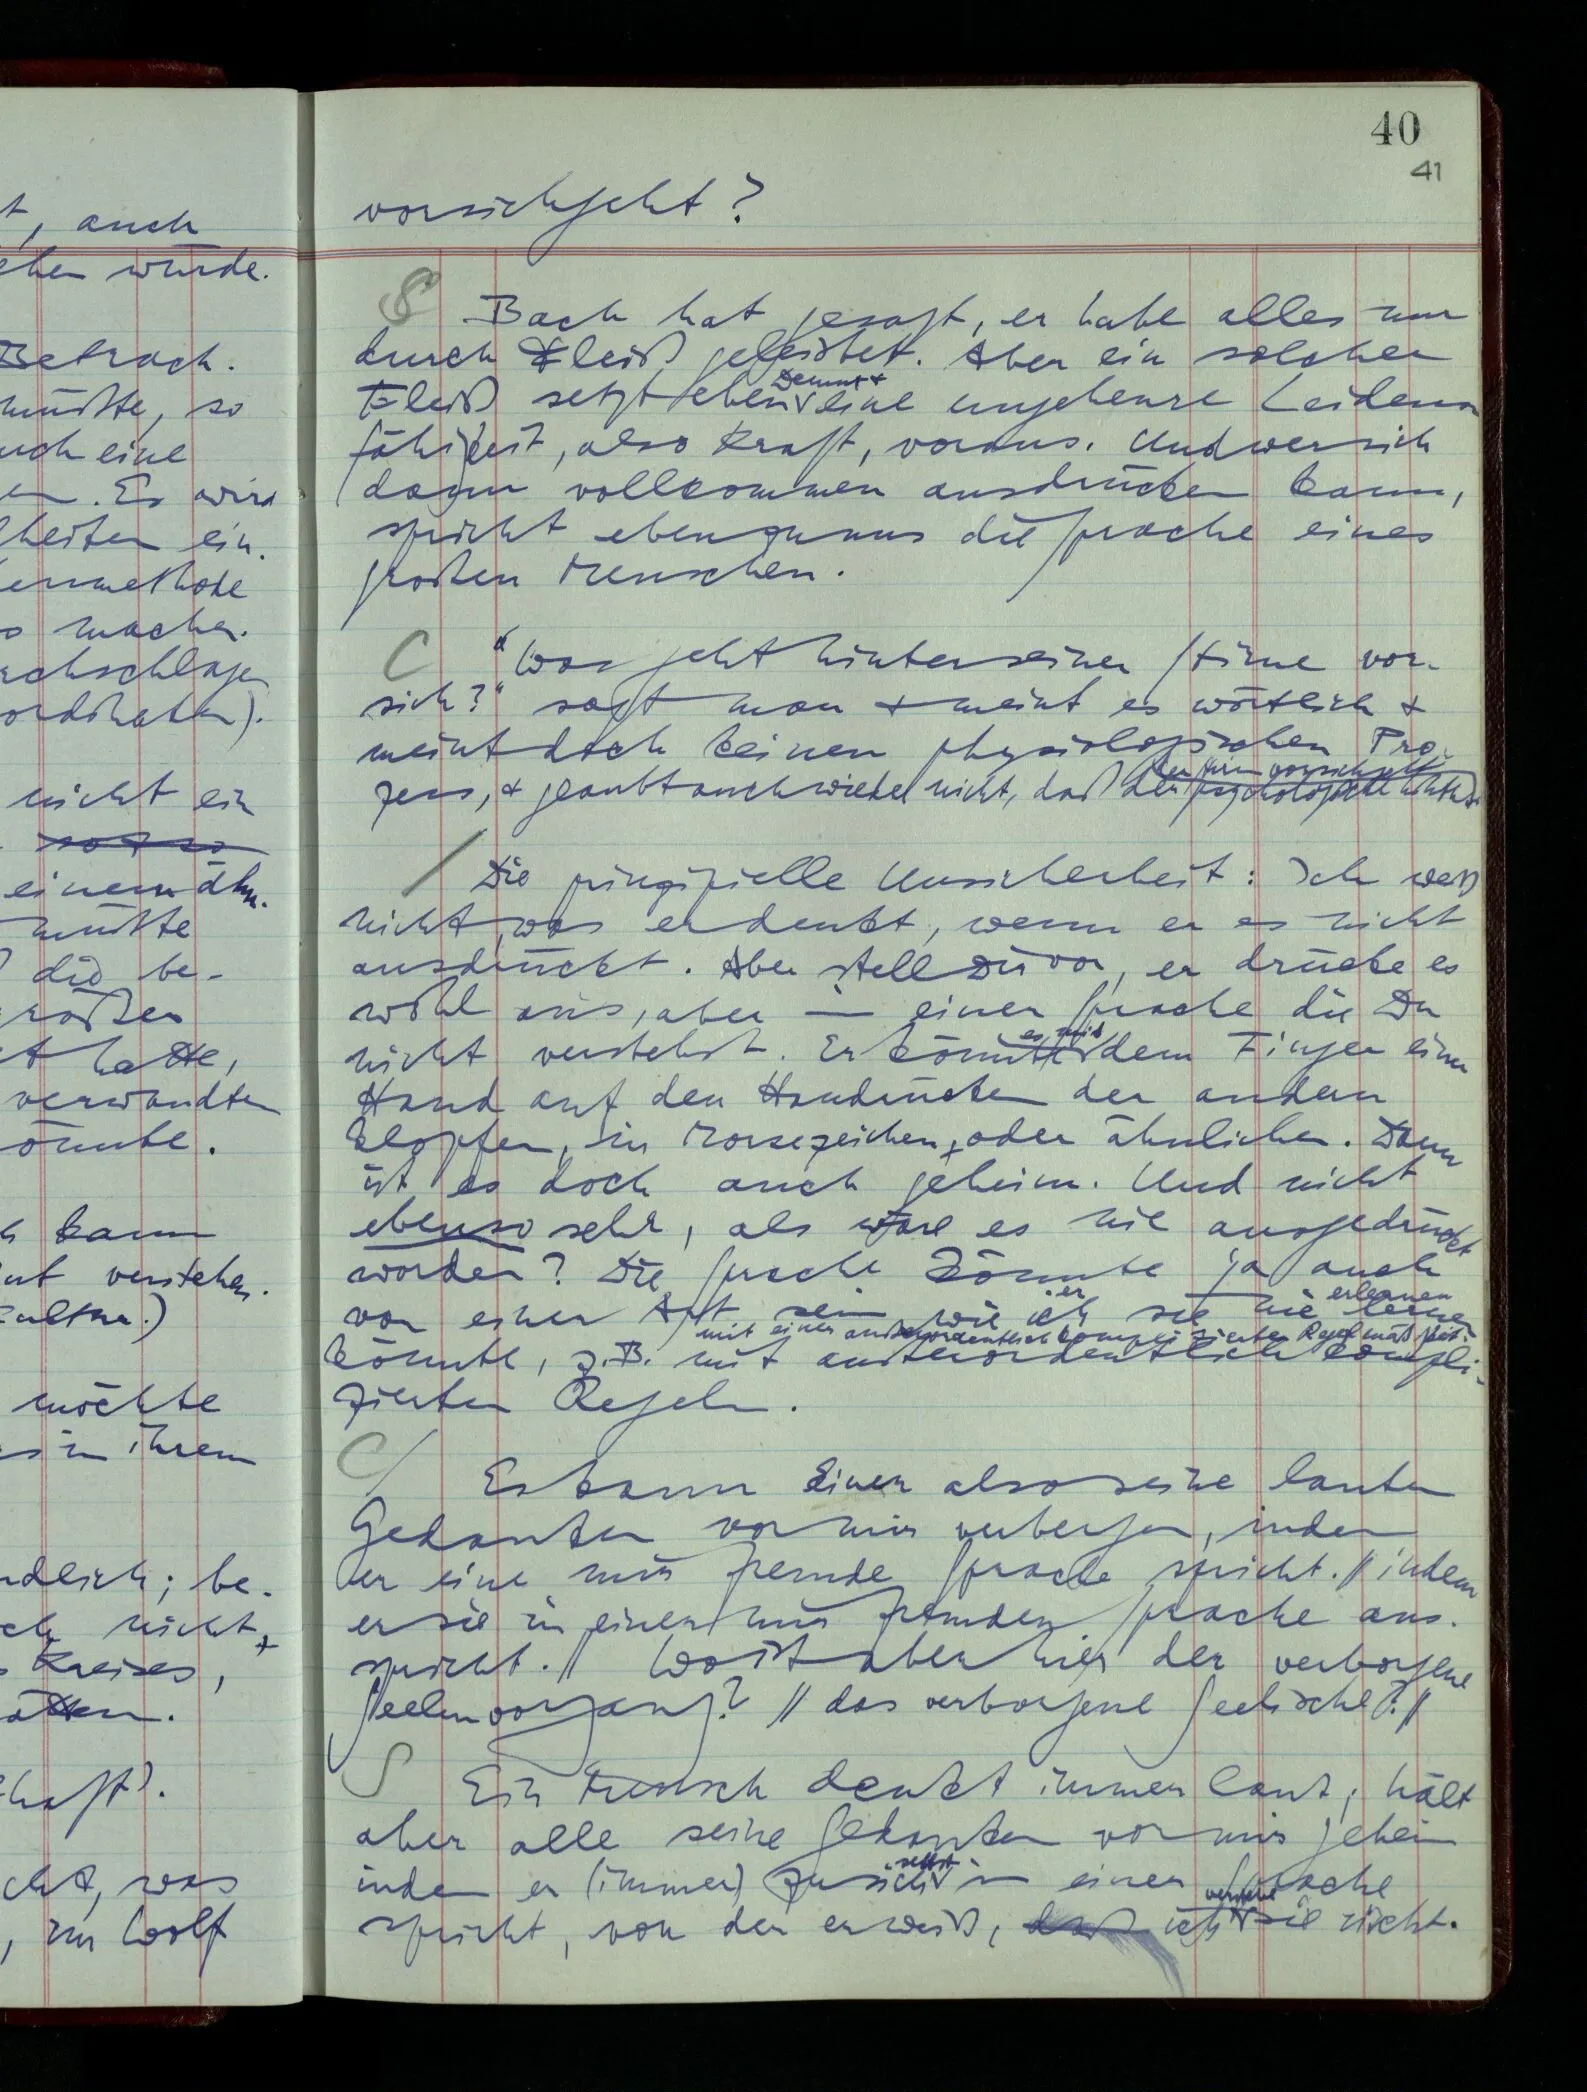 40
41
t, auch
ehen würde.
Betrach-
müßte, so
auch eine
en. Es wird
heiten ein.
ermethode
s machen.
achschlage
nicht ein
so
einem ähn-
müßte
die be-
großer
t hatte,
verwandten
önnte.
h kann
ut verstehen.
Kultur.)
möchte
s in ihrem
ndlich; be-
ch nicht, +
s Kreises,
ätten.
chaft).
cht, was
, im Wolf
vorsichgeht?
S
Bach hat gesagt, er habe alles nur
durch Fleiß geleistet. Aber ein solcher
Fleiß setzt eben Demut + eine ungeheure Leidens
fähigkeit, also Kraft, voraus. Und wer sich
dann vollkommen ausdrücken kann,
spricht eben zu uns die Sprache eines
großen Menschen.
C
"Was geht hinter seiner Stirne vor-
sich?" sagt man + meint es wörtlich +
meint doch keinen physiologischen Pro-
zess, + glaubt auch wieder nicht, daß der
/
Die prinzipielle Unsicherheit: Ich weiß
nicht was er denkt, wenn er es nicht
ausdrückt. Aber stell Dir vor, er drücke es
wohl aus, aber in einer Sprache die Du
nicht verstehst. Er könnte es mit dem Finger einer
Hand auf den Handrücken der andern
klopfen, in Morsezeichen, oder ähnlicher. Dann
ist es doch auch geheim. Und nicht
ebenso sehr, als wäre es nie ausgedrückt
worden? Die Sprache könnte ja auch
von einer Art sein wie ich er sie nie lernen erlernen
mit einer außerordentlich komplizierten Regelmäßigkeit.
könnte, z.B. mit außerordentlich kompli-
zierten Regeln.
C /
Es kann Einer also seine lauten
Gedanken vor mir verbergen, indem
er eine mir fremde Sprache spricht. // indem
er sie in einer mir fremden Sprache aus-
spricht. // Wo ist aber hier der verborgene
Seelenvorgang? // das verborgene Seelische? //
S
Ein Mensch denkt immer laut; hält
aber alle seine Gedanken vor mir geheim
indem er (immer) zu sich selbst in einer Sprache
spricht, von der er weiß, daß ich verstehe sie nicht.